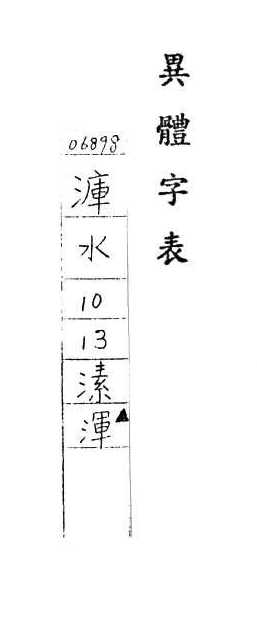 異體字表
06898
水
10
13
溸
渾▲